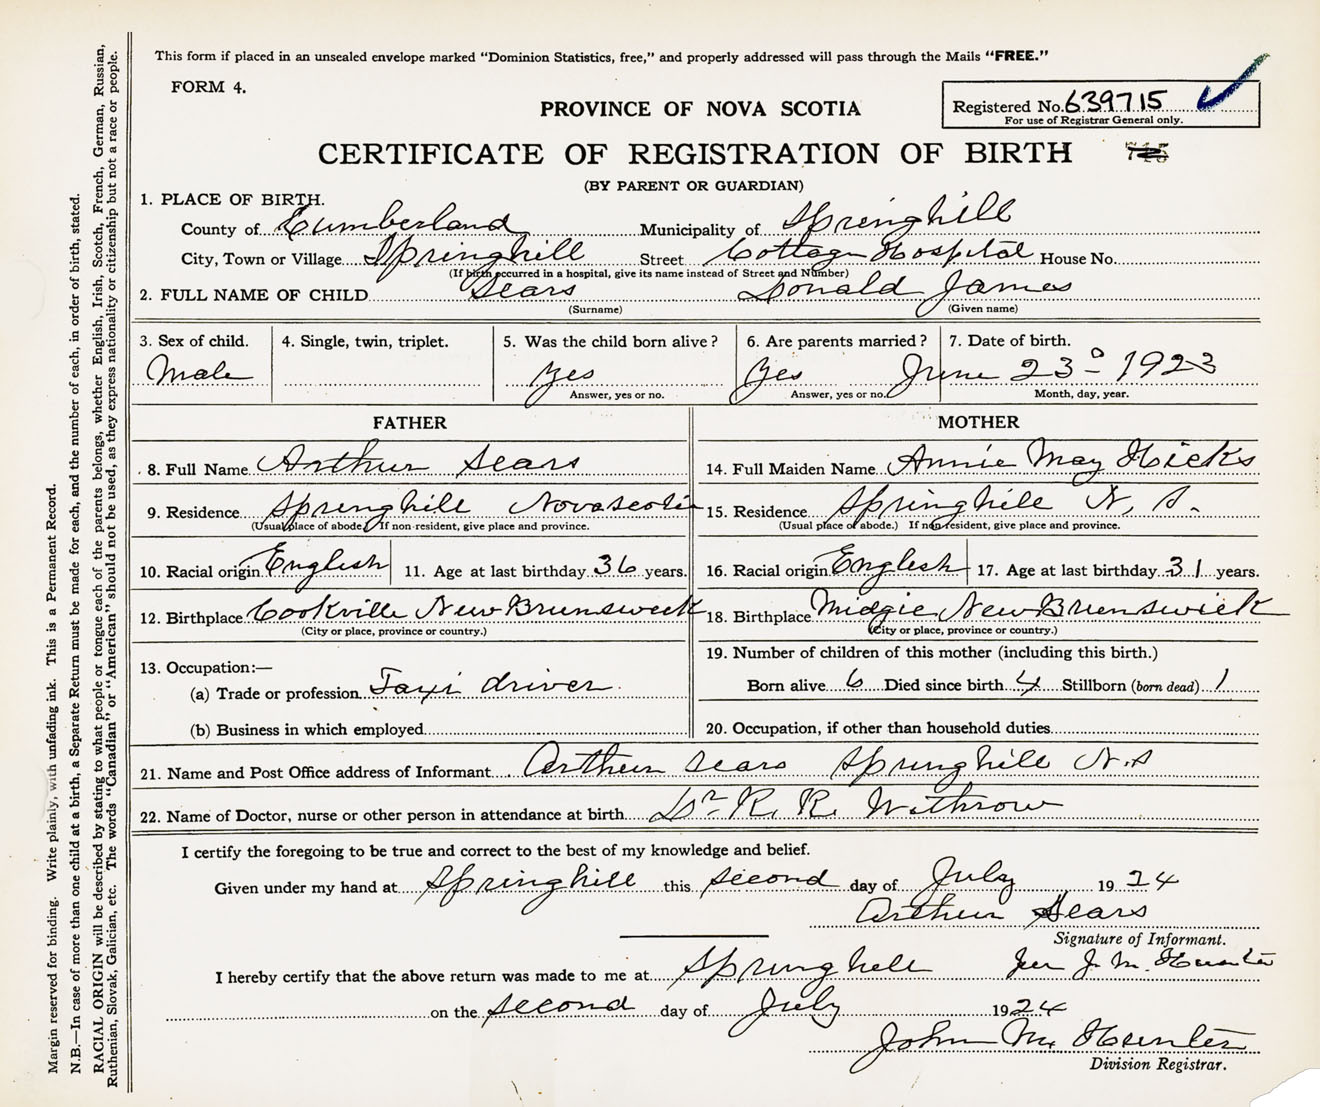 This form if placed in an unsealed envelope marked “Dominion Statistics, free,” and properly addressed will pass through the Mails “FREE.”
FORM 4.
Registered No. 639715
For use of Registrar General only.
PROVINCE OF NOVA SCOTIA
CERTIFICATE OF REGISTRATION OF BIRTH
(BY PARENT OR GUARDIAN)
1. PLACE OF BIRTH.
County of Cumberland Municipality of Springhill
City, Town or Village Springhill Street Cottage Hospital House No.
(If birth occurred in a hospital, give its name instead of Street and Number)
2. FULL NAME OF CHILD Sears Donald James
(Surname) (Given name)
3. Sex of child. 4. Single, twin, triplet. 5. Was the child born alive? 6. Are parents married? 7. Date of birth.
Male Yes Yes June 23 1923
Answer, yes or no. Answer, yes or no. Month, day, year.
FATHER
8. Full Name Arthur Sears
9. Residence Springhill Novascotia
(Usual place of abode. If non-resident, give place and province.
10. Racial origin English 11. Age at last birthday 36 years.
12. Birthplace Cookville New Brunsweck
(City or place, province or country.)
13. Occupation:—
(a) Trade or profession Taxi driver
(b) Business in which employed
MOTHER
14. Full Maiden Name Annie May Hicks
15. Residence Springhill N. S.
(Usual place of abode.) If non-resident, give place and province.
16. Racial origin English 17. Age at last birthday 31 years.
18. Birthplace Midgie New Brunswick
(City or place, province or country.)
19. Number of children of this mother (including this birth.)
Born alive 6 Died since birth 4 Stillborn (born dead) 1
20. Occupation, if other than household duties
21. Name and Post Office address of Informant Arthur Sears Springhill N.S
22. Name of Doctor, nurse or other person in attendance at birth Dr R. R. Withrow
I certify the foregoing to be true and correct to the best of my knowledge and belief.
Given under my hand at Springhill this second day of July 1924
Arthur Sears
Signature of Informant.
I hereby certify that the above return was made to me at Springhill J. M. Hunter
on the second day of July 1924
John M. Hunter
Division Registrar.
Margin reserved for binding. Write plainly, with unfading ink. This is a Permanent Record.
N.B.—In case of more than one child at a birth, a Separate Return must be made for each, and the number of each, in order of birth, stated.
RACIAL ORIGIN will be described by stating to what people or tongue each of the parents belongs, whether English, Irish, Scotch, French, German, Russian,
Ruthenian, Slovak, Galician, etc. The words “Canadian” or “American” should not be used, as they express nationality or citizenship but not a race or people.